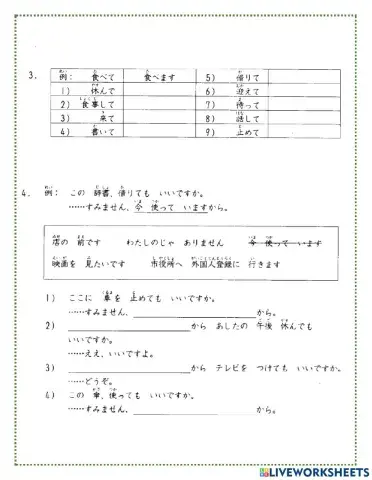 3.
例： 食べて 食べます 5) 借りて
1) 休んで 6) 迎えて
2) 食事して 7) 待って
3) 来て 8) 話して
4) 書いて 9) 止めて
4. 例： この 辞書、借りても いいですか。
……すみません、今 使って いますから。
店の 前です わたしのじゃ ありません 今 使って います
映画を 見たいです 市役所へ 外国人登録に 行きます
1) ここに 車を 止めても いいですか。
……すみません、＿＿＿＿＿＿から。
2) ＿＿＿＿＿＿から あしたの 午後 休んでも
いいですか。
……ええ、いいですよ。
3) ＿＿＿＿＿＿から テレビを つけても いいですか。
……どうぞ。
4) この 傘、使っても いいですか。
……すみません、＿＿＿＿＿＿から。
LIVEWORKSHEETS